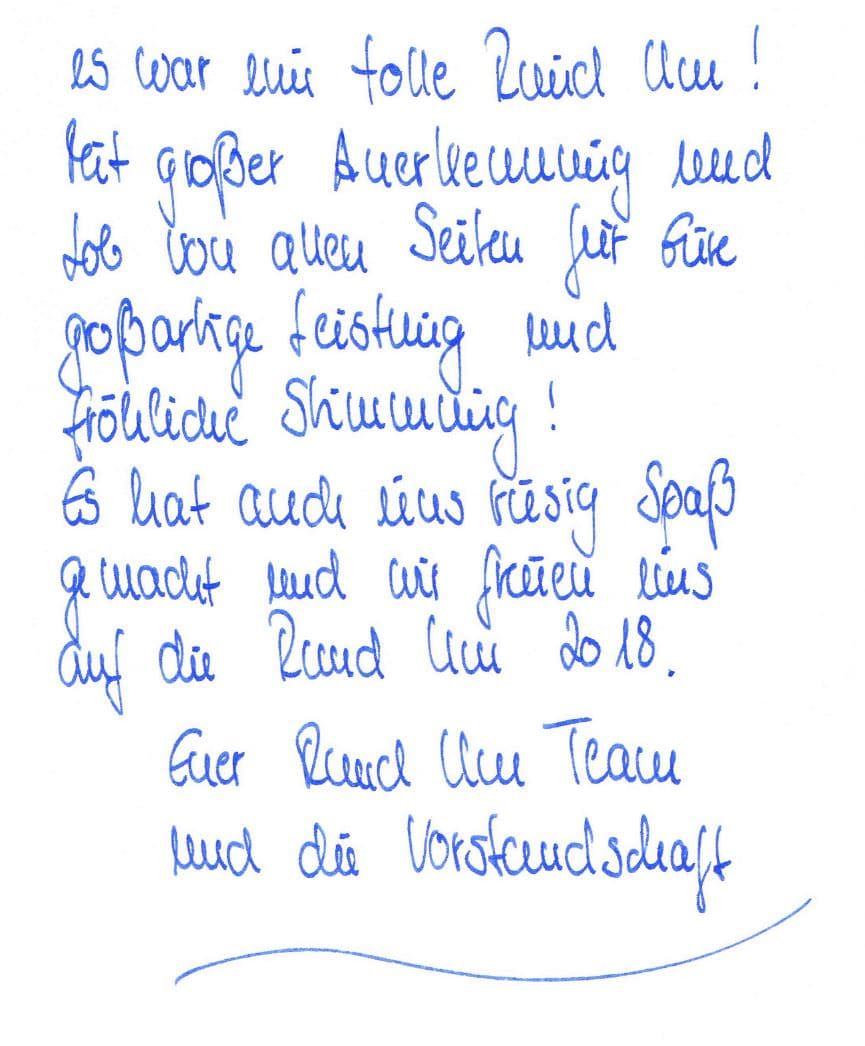 es war eine tolle Rund Um!
Mit großer Anerkennung und
Lob von allen Seiten für Eure
großartige Leistung und
fröhliche Stimmung!
Es hat auch uns riesig Spaß
gemacht und wir freuen uns
auf die Rund Um 2018.
Euer Rund Um Team
und die Vorstandschaft